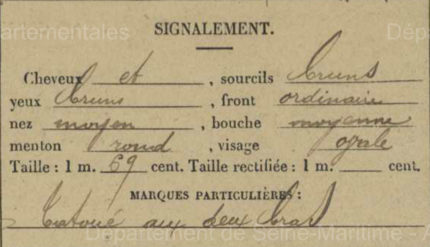 Départementales Dépa
SIGNALEMENT.
Cheveux et , sourcils bruns
yeux bruns , front ordinaire
nez moyen , bouche moyenne
menton rond , visage ovale
Taille : 1 m. 69 cent. Taille rectifiée : 1 m. cent.
MARQUES PARTICULIÈRES :
Tatoué aux deux bras
Département de Seine-Maritime - A